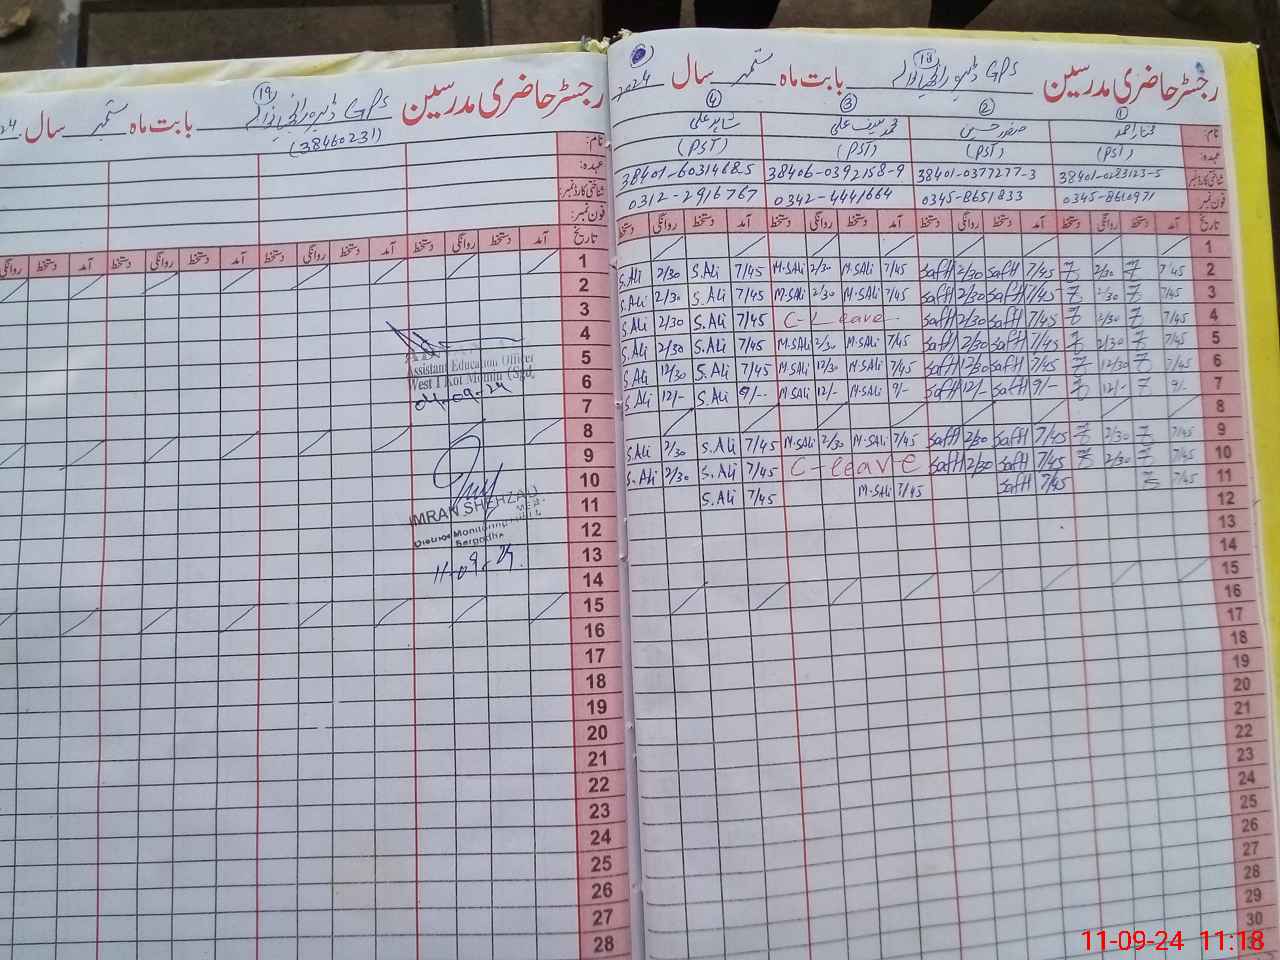 رجسٹر حاضری مدرسین GPS بابت ماہ ستمبر سال 2024
18
① ② ③ ④
نام: مختار احمد صفدر حسین محمد سیف علی شاہد علی
عہدہ: (PST) (PST) (PST) (PST)
شناختی کارڈ نمبر: 38401-0283123-5 38401-0377277-3 38406-0392158-9 38401-6031468-5
فون نمبر: 0345-8610971 0345-8651833 0342-4441664 0312-2916767
تاریخ آمد دستخط روانگی دستخط آمد دستخط روانگی دستخط آمد دستخط روانگی دستخط آمد دستخط روانگی دستخط
1
2 7/45 2/30 7/45 Saff 2/30 Saff 7/45 M.SAli 2/30 M.SAli 7/45 S.Ali 2/30 S.Ali
3 7/45 2/30 7/45 Saff 2/30 Saff 7/45 M.SAli 2/30 M.SAli 7/45 S.Ali 2/30 S.Ali
4 7/45 2/30 7/45 Saff 2/30 Saff C-Leave 7/45 S.Ali 2/30 S.Ali
5 7/45 2/30 7/45 Saff 2/30 Saff 7/45 M.SAli 2/30 M.SAli 7/45 S.Ali 2/30 S.Ali
6 7/45 12/30 7/45 Saff 12/30 Saff 7/45 M.SAli 12/30 M.SAli 7/45 S.Ali 12/30 S.Ali
7 9/- 12/- 9/- Saff 12/- Saff 9/- M.SAli 12/- M.SAli 9/- S.Ali 12/- S.Ali
8
9 7/45 2/30 7/45 Saff 2/30 Saff 7/45 M.SAli 2/30 M.SAli 7/45 S.Ali 2/30 S.Ali
10 7/45 2/30 7/45 Saff 2/30 Saff C-leave 7/45 S.Ali 2/30 S.Ali
11 7/45 7/45 Saff 7/45 M.SAli 7/45 S.Ali
12
13
14
15
16
17
18
19
20
21
22
23
24
25
26
27
28
29
30
رجسٹر حاضری مدرسین GPS بابت ماہ ستمبر سال
19
(38460231)
نام:
عہدہ:
شناختی کارڈ نمبر:
فون نمبر:
تاریخ آمد دستخط روانگی دستخط آمد دستخط روانگی دستخط آمد دستخط روانگی دستخط آمد دستخط روانگی
1
2
3
4
5
6
7
8
9
10
11
12
13
14
15
16
17
18
19
20
21
22
23
24
25
26
27
28
Assistant Education Officer
West I Kot Momin (Sgd)
04-09-24
IMRAN SHEHZAD
District Monitoring
Sargodha
11-09-24
11-09-24 11:18